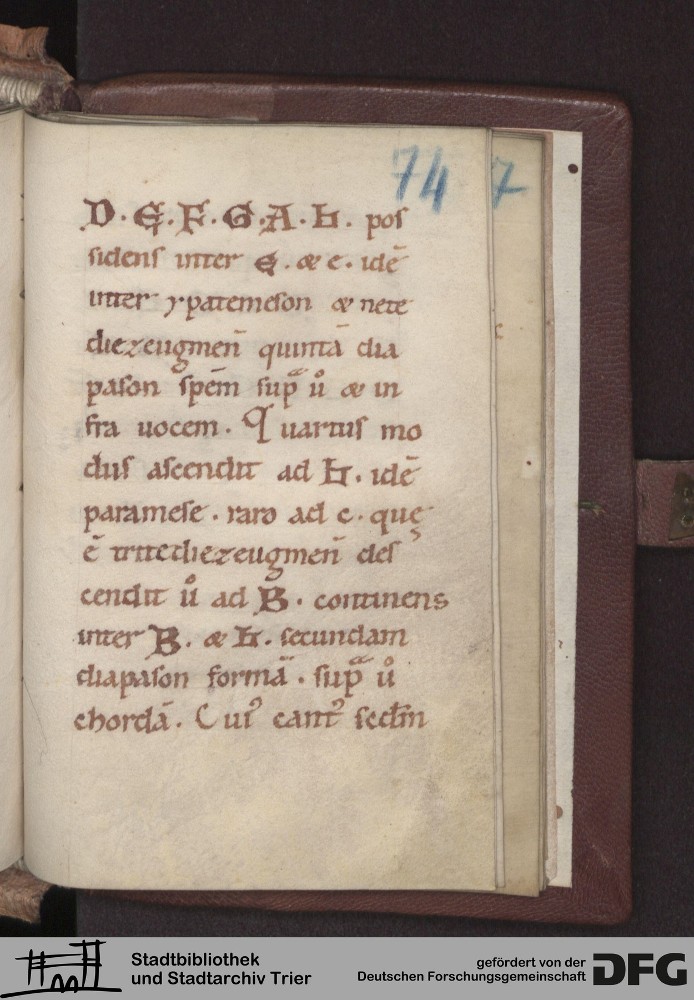 74 7
D. E. F. G. A. h. pos
sidens inter E. & e. idē
inter ypatemeson & nete
diezeugmen̄ quintā dia
pason spēm supͣ uͦ & in
fra uocem. Quartus mo
dus ascendit ad h. idē
paramese. raro ad c. quę
ē tritediezeugmen̄ des
cendit uͦ ad B. continens
inter B. & h. secundam
diapason formā. supͣ uͦ
chordā. Cuiꝰ cant᷒ secdm̄
Stadtbibliothek
und Stadtarchiv Trier
gefördert von der
Deutschen Forschungsgemeinschaft
DFG